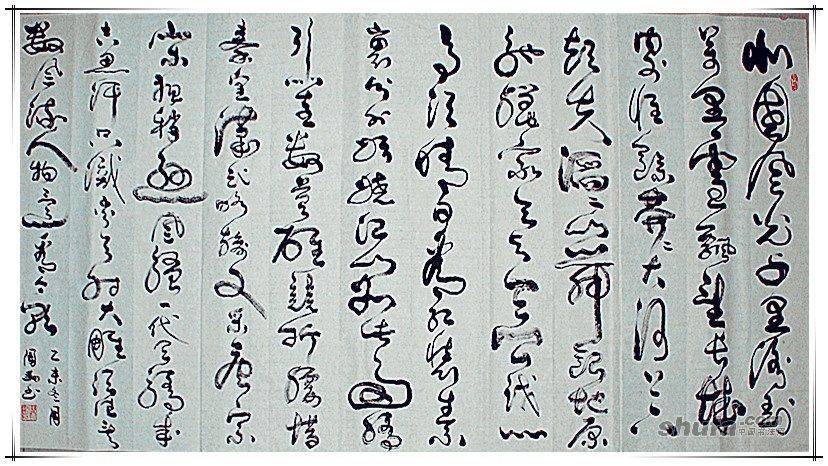 北國风光千里冰封
万里雪飄望长城
内外惟馀莽莽大河上下
顿失滔滔山舞银蛇原
驰蜡象欲与天公试比
高须晴日看红装素
裹分外妖娆江山如此多娇
引无数英雄竞折腰惜
秦皇漢武略输文采唐宗
宋祖稍逊风骚一代天骄成
吉思汗只识弯弓射大雕俱往矣
数风流人物还看今朝
乙未冬月
shufa.com
中国书法网